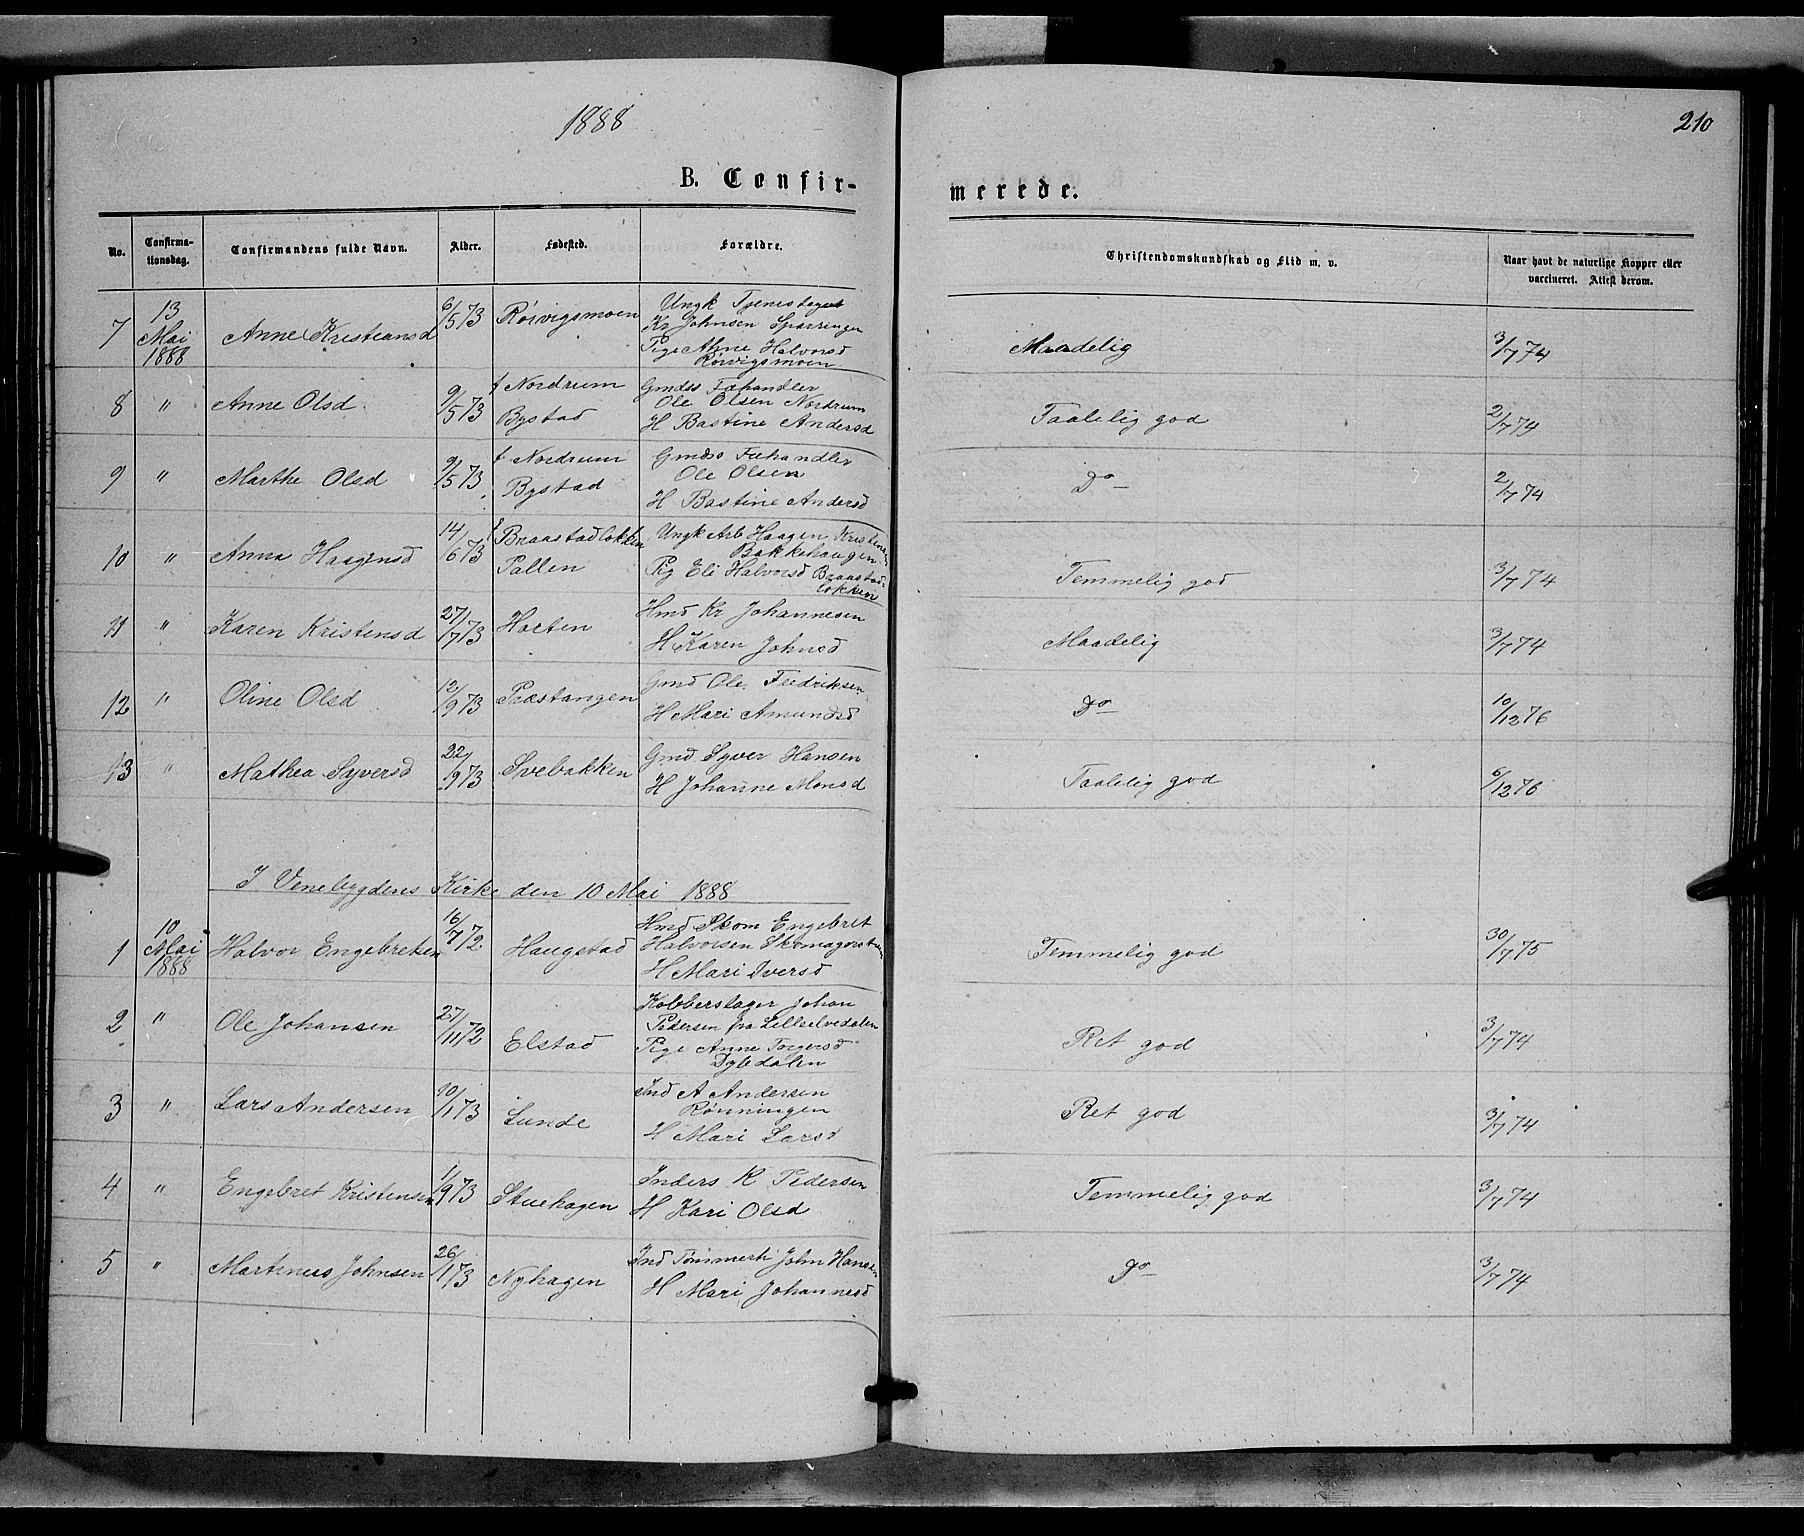 1888
210
B. Confir-
merede.
No.
Confirma-
tionsdag.
Confirmandens fulde Navn.
Alder.
Fødested.
Forældre.
Christendomskundskab og Flid m. v.
Naar havt de naturlige Kopper eller
vaccineret. Attest derom.
7
13
Mai
1888
Anne Kristiansd
6/5 73
Røivigsmoen
Ungk Tjenestegut
Kr Johnsen Sparringen
Pige Anne Halvorsd
Røivigsmoen
Maadelig
3/7 74
8
"
Anne Olsd
9/5 73
f Nordrum
Bystad
Gmdss Fæhandler
Ole Olsen Nordrum
H Bastine Andersd
Taalelig god
2/7 74
9
"
Marthe Olsd
9/5 73
f Nordrum
Bystad
Gmdss Fæhandler
Ole Olsen
H Bastine Andersd
Do
2/7 74
10
"
Anna Haagensd
14/6 73
f Braastadløkken
Pallen
Ungk Arb Haagen Kristensen
Bakkehaugen
Pig Eli Halvorsd Braastad-
løkken
Temmelig god
3/7 74
11
"
Karen Kristensd
27/7 73
Horten
Hmd Kr Johannesen
H Karen Johnsd
Maadelig
3/7 74
12
"
Oline Olsd
12/9 73
Præstangen
Gmd Ole Fredriksen
H Mari Amundsd
Do
10/12 76
13
"
Mathea Syversd
22/9 73
Svebakken
Gmd Syver Hansen
H Johanne Monsd
Taalelig god
6/12 76
I Venebygdens Kirke den 10 Mai 1888
1
10
Mai
1888
Halvor Engebretsen
16/7 72
Haugstad
Hmd Skom Engebret
Halvorsen
H Mari Iversd
Temmelig god
30/7 75
2
"
Ole Johansen
27/11 72
Elstad
Kobberslager Johan
Pedersen fra Lillelvedalen
Pige Anne Torgersd
Dyledalen
Ret god
3/7 74
3
"
Lars Andersen
/1 73
Lunde
Ind A Andersen
Rønningen
H Mari Larsd
Ret god
3/7 74
4
"
Engebret Kristensen
/9 73
Stuehagen
Inders K Pedersen
H Kari Olsd
Temmelig god
3/7 74
5
"
Martinus Johnsen
26/1 73
Nyhagen
Ind Tømmerh John Hansen
H Mari Johannesd
Do
3/7 74